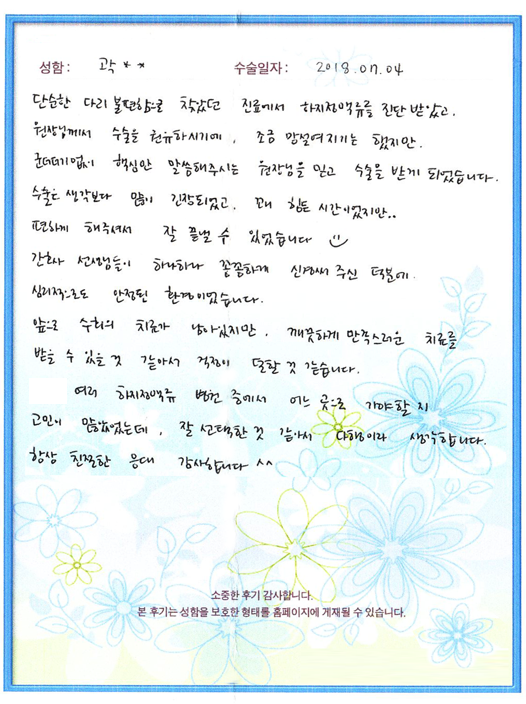 성함 : 곽 * * 수술일자 : 2018.07.04
단순한 다리 불편함으로 찾았던 진료에서 하지정맥류를 진단 받았고.
원장님께서 수술을 권유하시기에, 조금 망설여지기는 했지만.
군더더기없이 핵심만 말씀해주시는 원장님을 믿고 수술을 받게 되었습니다.
수술도 생각보다 많이 긴장되었고, 꽤 힘든 시간이었지만..
편하게 해주셔서 잘 끝낼 수 있었습니다
간호사 선생님들이 하나하나 꼼꼼하게 신경써 주신 덕분에.
심리적으로도 안정된 환경이었습니다.
앞으로 수회의 치료가 남아있지만, 깨끗하게 만족스러운 치료를
받을 수 있을 것 같아서 걱정이 덜할 것 같습니다.
여러 하지정맥류 병원 중에서 어느 곳으로 가야할 지
고민이 많았었는데, 잘 선택한 것 같아서 다행이라 생각합니다.
항상 친절한 응대 감사합니다 ^^
소중한 후기 감사합니다.
본 후기는 성함을 보호한 형태를 홈페이지에 게재될 수 있습니다.